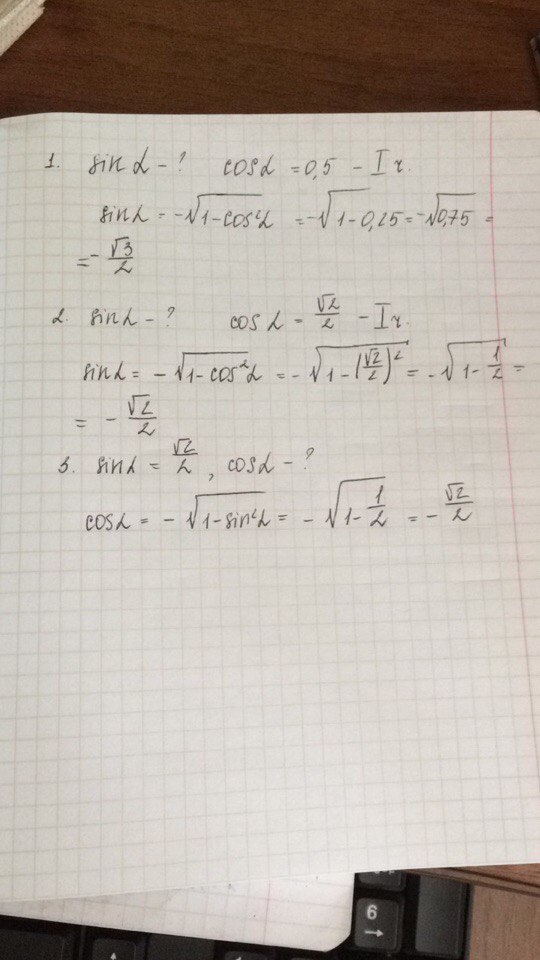 1. sin α - ? cos α = 0,5 - I ч.
sin α = -√(1-cos²α) = -√(1-0,25) = -√0,75 =
= - √3/2
2. sin α - ? cos α = √2/2 - I ч.
sin α = - √(1-cos²α) = - √(1-(√2/2)²) = - √(1-1/2) =
= - √2/2
3. sin α = √2/2, cos α - ?
cos α = - √(1-sin²α) = - √(1-1/2) = - √2/2
6
→